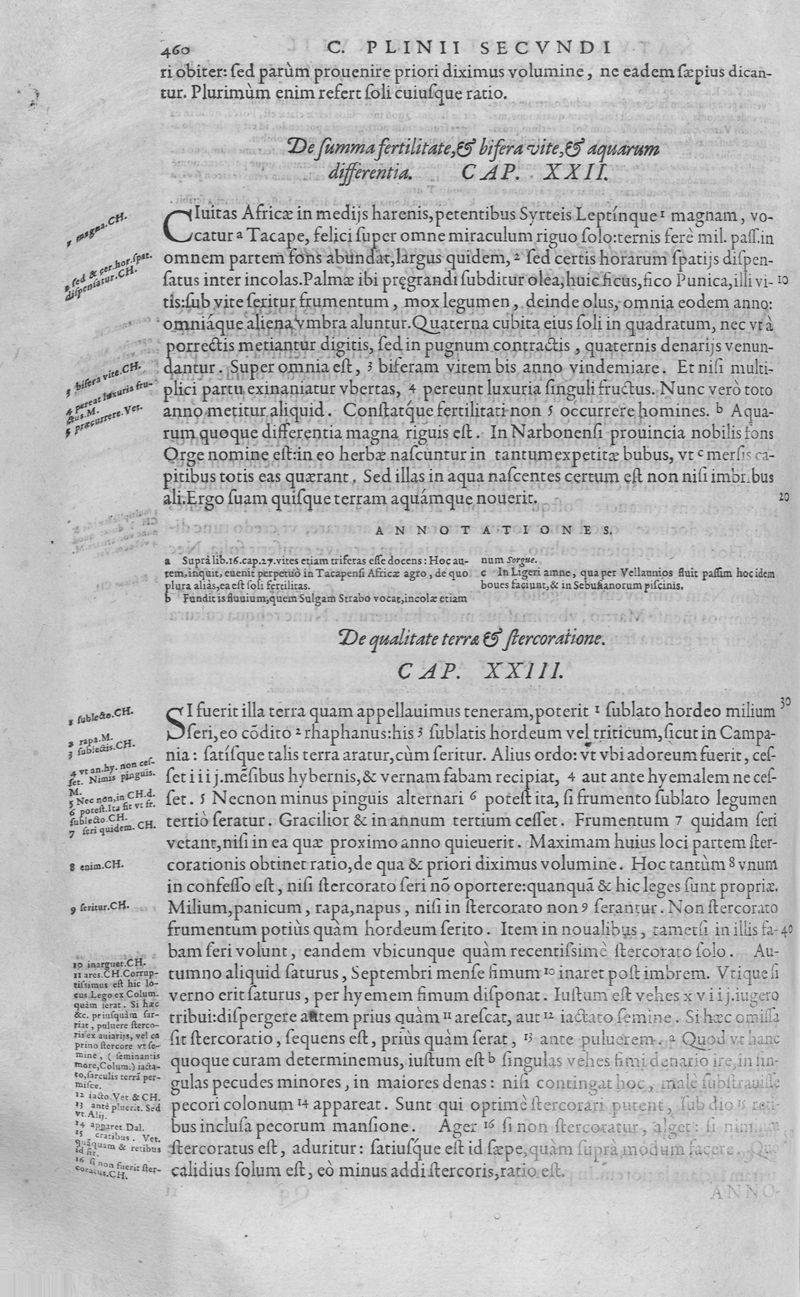 460
C. PLINII SECVNDI
ri obiter: ſed parùm prouenire priori diximus volumine, ne eadem ſæpius dican-
tur. Plurimùm enim refert ſoli cuiuſque ratio.
De ſumma fertilitate, & bifera vite, & aquarum
differentia. CAP. XXII.
CIuitas Africæ in medijs harenis, petentibus Syrteis Leptínque 1 magnam, vo-
catur a Tacape, felici ſuper omne miraculum riguo ſolo: ternis ferè mil. paſſ. in
omnem partem fons abundat, largus quidem, 2 ſed certis horarum ſpatijs diſpen-
ſatus inter incolas. Palmæ ibi pręgrandi ſubditur olea, huic ficus, fico Punica, illi vi- 10
tis: ſub vite ſeritur frumentum, mox legumen, deinde olus, omnia eodem anno:
omniáque aliena vmbra aluntur. Quaterna cubita eius ſoli in quadratum, nec vt à
porrectis metiantur digitis, ſed in pugnum contractis, quaternis denarijs venun-
dantur. Super omnia eſt, 3 biferam vitem bis anno vindemiare. Et niſi multi-
plici partu exinaniatur vbertas, 4 pereunt luxuria ſinguli fructus. Nunc verò toto
anno metitur aliquid. Conſtatq́ue fertilitati non 5 occurrere homines. b Aqua-
rum quoque differentia magna riguis eſt. In Narbonenſi prouincia nobilis fons
Orge nomine eſt: in eo herbæ naſcuntur in tantum expetitæ bubus, vt c merſis ca-
pitibus totis eas quærant. Sed illas in aqua naſcentes certum eſt non niſi imbribus
ali. Ergo ſuam quiſque terram aquámque nouerit. 20
1 magna.CH.
2 ſed & cer. hor. ſpat.
diſpenſatur.CH.
3 bifera vite.CH.
4 pereat luxuria fru-
ctus.M.
5 præcurrere.Vet.
ANNOTATIONES.
a Suprà lib.16.cap.27.vites etiam triferas eſſe docens: Hoc au-
tem, inquit, euenit perpetuò in Tacapenſi Africæ agro, de quo
plura aliàs, ea eſt ſoli fertilitas.
b Fundit is fluuium, quem Sulgam Strabo vocat, incolæ etiam
num Sorgue.
c In Ligeri amne, qua per Vellaunios fluit paſſim hoc idem
boues faciunt, & in Sebuſianorum piſcinis.
De qualitate terra & ſtercoratione.
CAP. XXIII.
SI fuerit illa terra quam appellauimus teneram, poterit 1 ſublato hordeo milium 30
ſeri, eo cõdito 2 rhaphanus: his 3 ſublatis hordeum vel triticum, ſicut in Campa-
nia: ſatíſque talis terra aratur, cùm ſeritur. Alius ordo: vt vbi adoreum fuerit, ceſ-
ſet iiij. mẽſibus hybernis, & vernam fabam recipiat, 4 aut ante hyemalem ne ceſ-
ſet. 5 Necnon minus pinguis alternari 6 poteſt ita, ſi frumento ſublato legumen
tertiò ſeratur. Gracilior & in annum tertium ceſſet. Frumentum 7 quidam ſeri
vetant, niſi in ea quæ proximo anno quieuerit. Maximam huius loci partem ſter-
corationis obtinet ratio, de qua & priori diximus volumine. Hoc tantùm 8 vnum
in confeſſo eſt, niſi ſtercorato ſeri nõ oportere: quanquã & hic leges ſunt propriæ.
Milium, panicum, rapa, napus, niſi in ſtercorato non 9 ſerantur. Non ſtercorato
frumentum potiùs quàm hordeum ſerito. Item in noualibus, tametſi in illis fa- 40
bam ſeri volunt, eandem vbicunque quàm recentiſsimè ſtercorato ſolo. Au-
tumno aliquid ſaturus, Septembri menſe fimum 10 inaret poſt imbrem. Vtique ſi
verno erit ſaturus, per hyemem fimum diſponat. Iuſtum eſt vehes xviij. iugero
tribui: diſpergere autem prius quàm 11 areſcat, aut 12 iactato ſemine. Si hæc omiſſa
ſit ſtercoratio, ſequens eſt, priùs quàm ſerat, 13 ante puluerem. a Quod vt hanc
quoque curam determinemus, iuſtum eſt b ſingulas vehes fimi denario ire, in ſin-
gulas pecudes minores, in maiores denas: niſi contingat hoc, male ſubſtrauiſſe
pecori colonum 14 appareat. Sunt qui optimè ſtercorari putent, ſub dio 15 reti-
bus incluſa pecorum manſione. Ager 16 ſi non ſtercoratur, alget: ſi nimium
ſtercoratus eſt, aduritur: ſatiuſque eſt id ſæpe, quàm ſupra modum facere. Quo
calidius ſolum eſt, eò minus addi ſtercoris, ratio eſt.
1 ſublecto.CH.
2 rapa.M.
3 ſublectis.CH.
4 vt an.hy. non ceſ-
ſet. Nimis pinguis.
M.
5 Nec non, in CH.d.
6 poteſt. Ita ſit vt fr.
ſublecto.CH.
7 ſeri quidem. CH.
8 enim.CH.
9 ſeritur.CH.
10 inarguet.CH.
11 ares.CH.Corrup-
tiſsimus eſt hic lo-
cus. Lego ex Colum.
quàm ſerat. Si hæc
&c. priuſquàm ſar-
riat, puluere ſterco-
ris ex auiarijs, vel ca
prino ſtercore vt ſe-
mine, (ſeminantis
more, Colum.) iacta-
to, ſarculis terrã per-
miſce.
12 iacto.Vet.& CH.
13 antè pluerit. Sed
vt. Alij.
14 apparet.Dal.
15 cratibus. Vet.
quãquam & retibus
id fit.
16 ſi non fuerit ſter-
coratus.CH.
ANNO-